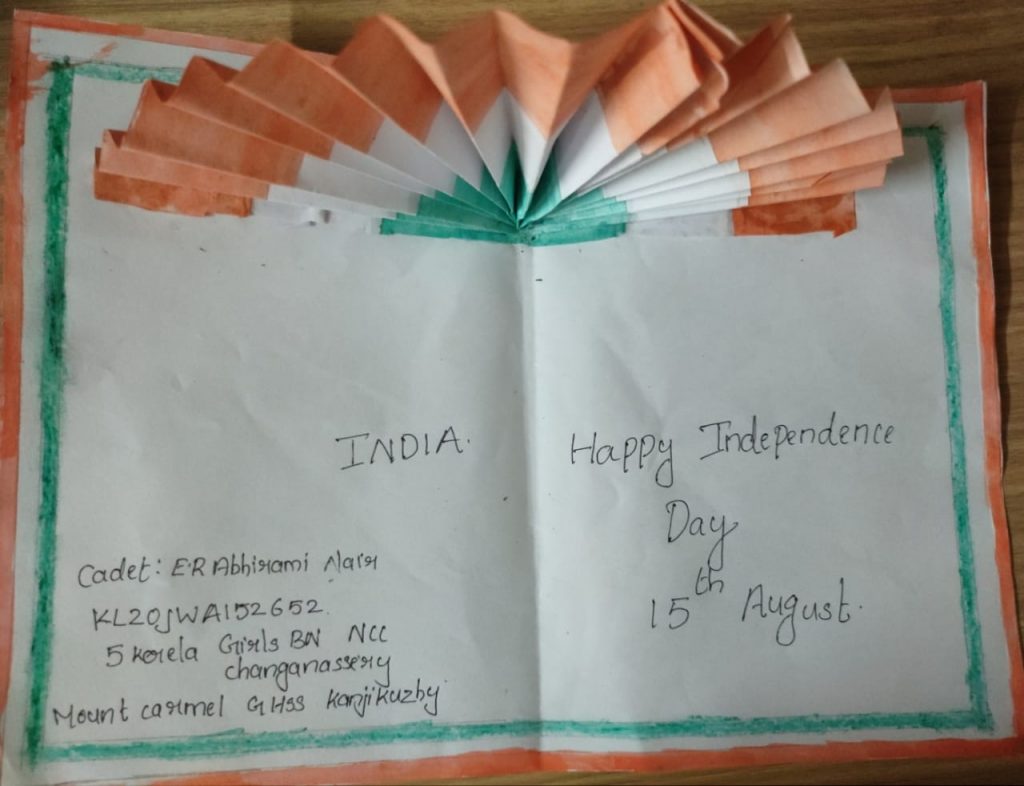 INDIA.
Happy Independence
Day
15th August.
Cadet: E.R Abhirami Nair
KL20JWA152652.
5 kerela Girls BN NCC
changanassery
Mount carmel GHSS Kanjikuzhy